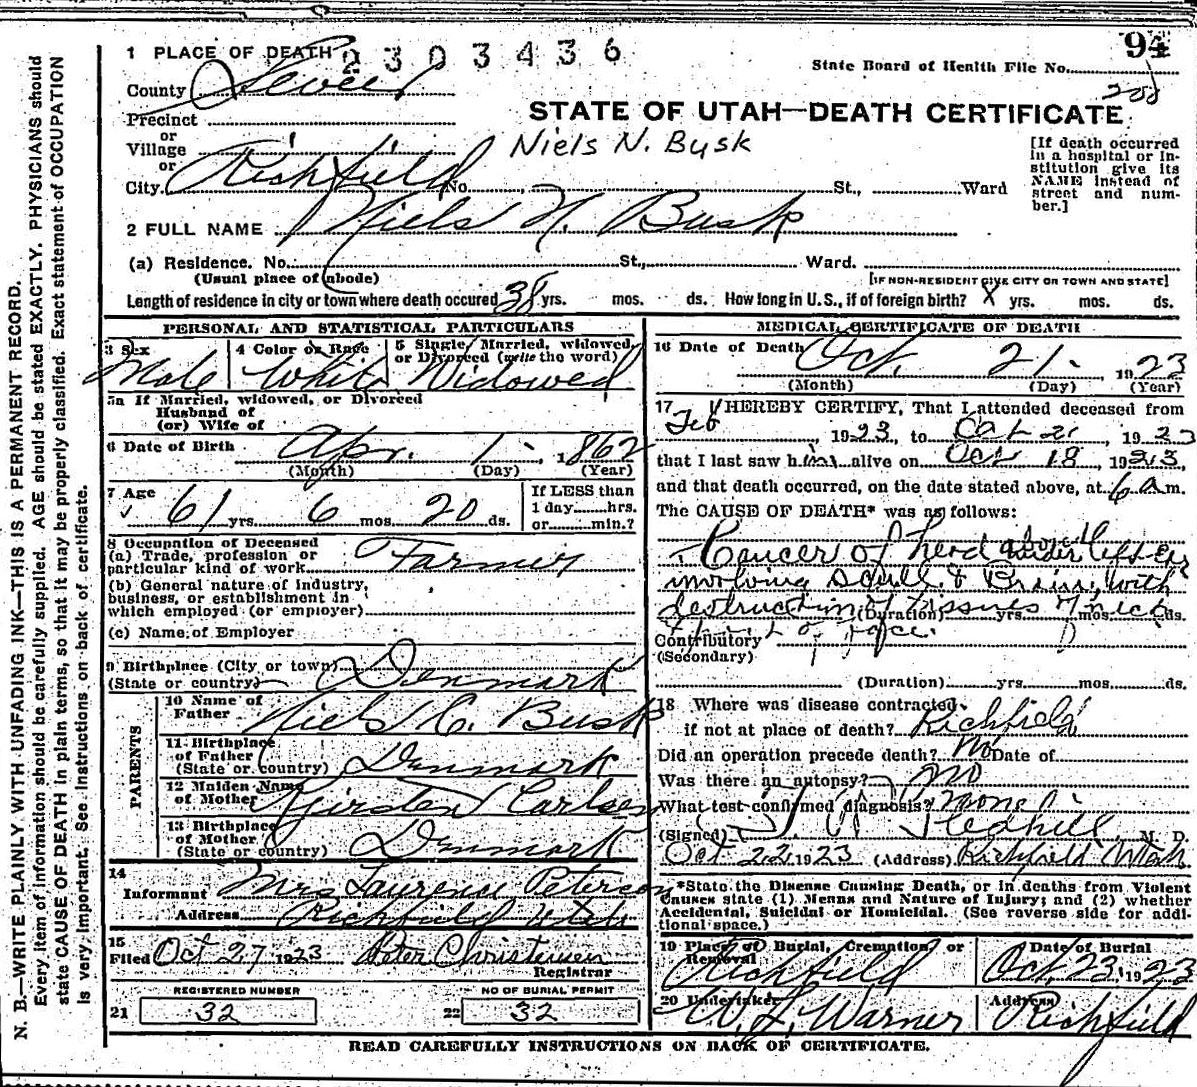 94
1 PLACE OF DEATH 2303436
State Board of Health File No.
County Sevier
STATE OF UTAH—DEATH CERTIFICATE
Precinct
or
Village
Niels N. Busk
or
City Richfield No. St., Ward
[If death occurred in a hospital or institution give its NAME instead of street and number.]
2 FULL NAME Niels N. Busk
(a) Residence. No. St., Ward.
(Usual place of abode) [IF NON-RESIDENT GIVE CITY OR TOWN AND STATE]
Length of residence in city or town where death occured 38 yrs. mos. ds. How long in U.S., if of foreign birth? X yrs. mos. ds.
PERSONAL AND STATISTICAL PARTICULARS
3 Sex 4 Color or Race 5 Single, Married, widowed, or Divorced (write the word)
Male White Widowed
5a If Married, widowed, or Divorced
Husband of
(or) Wife of
6 Date of Birth Apr. 1 1862
(Month) (Day) (Year)
7 Age 61 yrs. 6 mos. 20 ds.
If LESS than
1 day......hrs.
or......min.?
8 Occupation of Deceased
(a) Trade, profession or
particular kind of work Farmer
(b) General nature of industry,
business, or establishment in
which employed (or employer)
(c) Name of Employer
9 Birthplace (City or town)
(State or country) Denmark
PARENTS
10 Name of
Father Niels C. Busk
11 Birthplace
of Father
(State or country) Denmark
12 Maiden Name
of Mother Kjirsten Carlsen
13 Birthplace
of Mother
(State or country) Denmark
14
Informant Mrs Laurence Peterson
Address Richfield Utah
15
Filed Oct 27 1923 Peter Christensen
Registrar
REGISTERED NUMBER NO OF BURIAL PERMIT
21 32 22 32
MEDICAL CERTIFICATE OF DEATH
16 Date of Death Oct. 21 1923
(Month) (Day) (Year)
17 I HEREBY CERTIFY, That I attended deceased from
Feb, 1923, to Oct 21, 1923
that I last saw him alive on Oct 18, 1923,
and that death occurred, on the date stated above, at 6 a m.
The CAUSE OF DEATH* was as follows:
Cancer of head above left ear
involving scull & Brain, with
destruction of tissues of neck
(Duration) yrs. mos. ds.
Contributory
of face.
(Secondary)
(Duration) yrs. mos. ds.
18 Where was disease contracted
if not at place of death? Richfield
Did an operation precede death? No Date of
Was there an autopsy? no
What test confirmed diagnosis? none
(Signed) M. D.
Oct 22 1923 (Address) Richfield Utah
*State the Disease Causing Death, or in deaths from Violent
Causes state (1) Means and Nature of Injury; and (2) whether
Accidental, Suicidal or Homicidal. (See reverse side for addi-
tional space.)
19 Place of Burial, Cremation, or Date of Burial
Removal
Richfield Oct 23, 1923
20 Undertaker Address
W. L. Warner Richfield
READ CAREFULLY INSTRUCTIONS ON BACK OF CERTIFICATE.
N. B.—WRITE PLAINLY WITH UNFADING INK—THIS IS A PERMANENT RECORD.
Every item of information should be carefully supplied. AGE should be stated EXACTLY. PHYSICIANS should
state CAUSE OF DEATH in plain terms, so that it may be properly classified. Exact statement of OCCUPATION
is very important. See instructions on back of certificate.